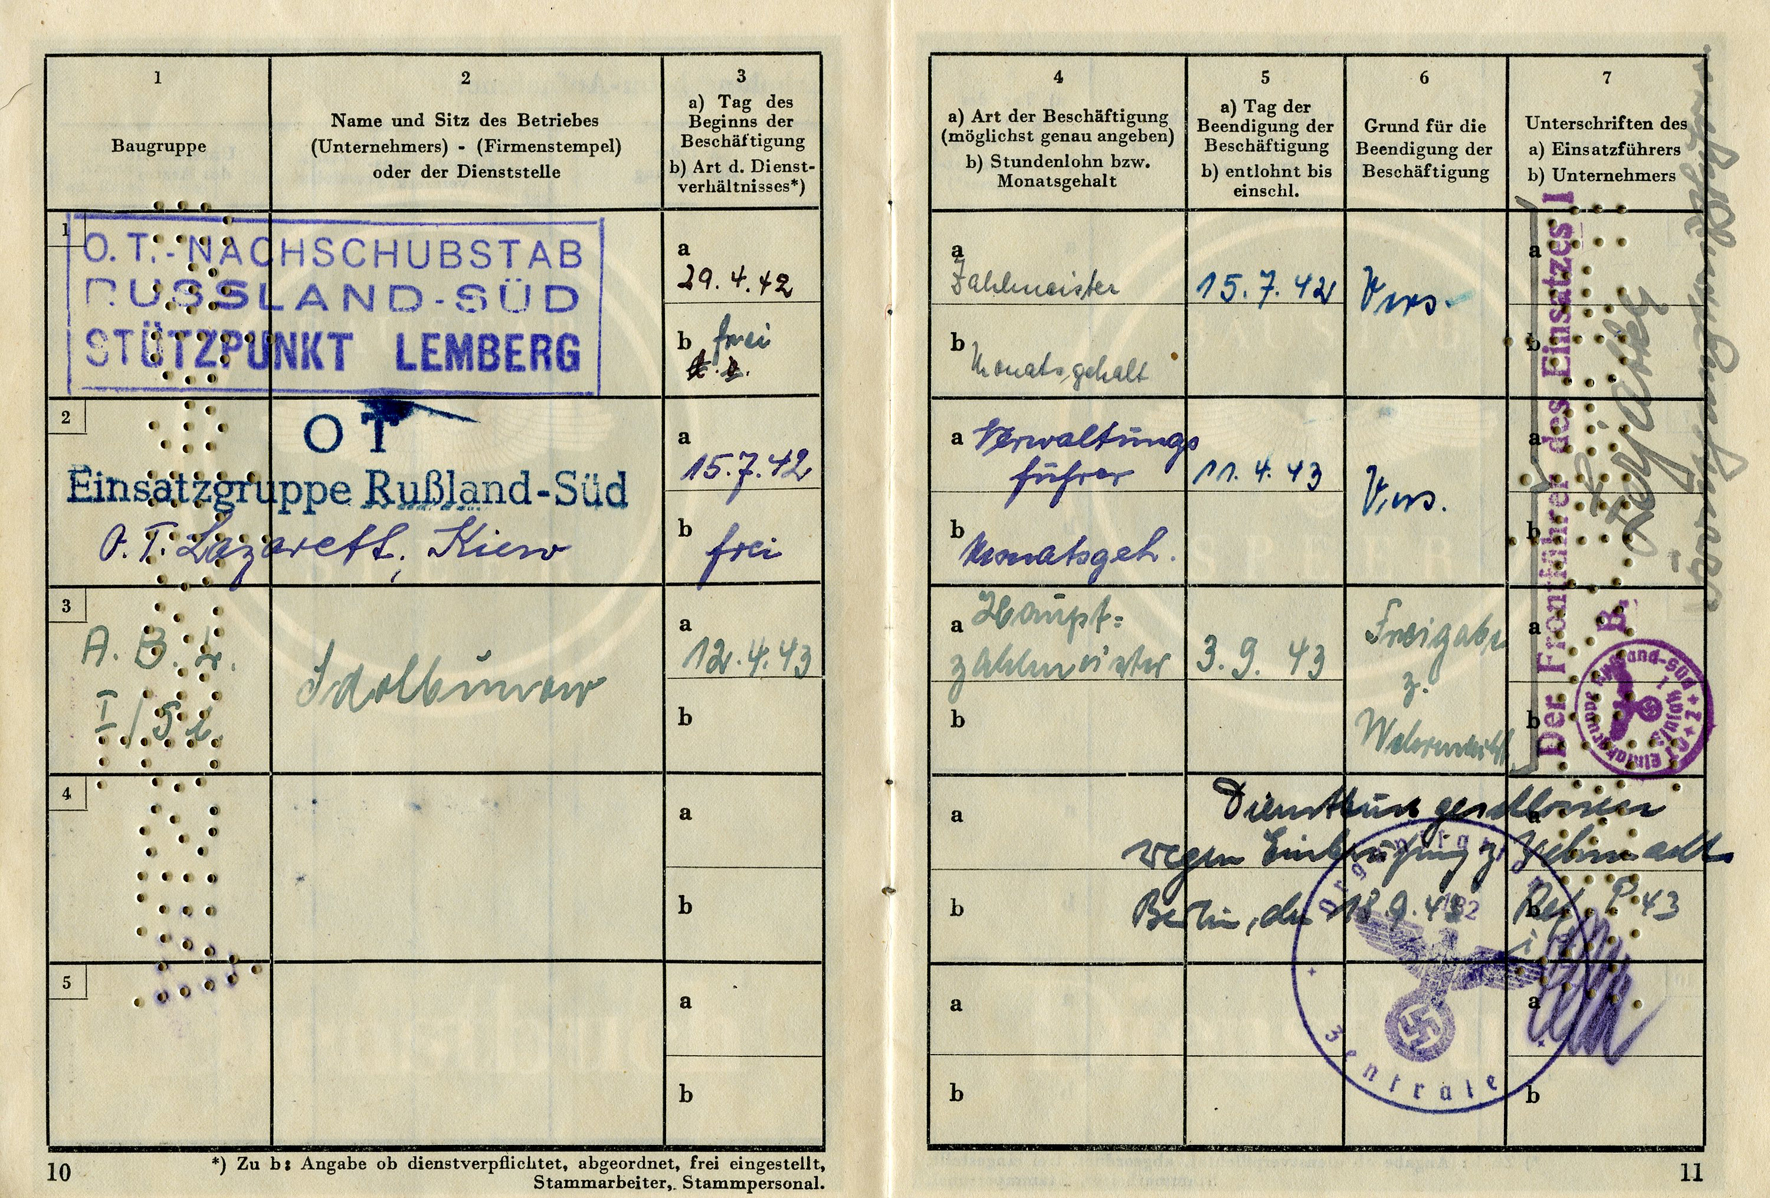 1
Baugruppe
2
Name und Sitz des Betriebes
(Unternehmers) - (Firmenstempel)
oder der Dienststelle
3
a) Tag des
Beginns der
Beschäftigung
b) Art d. Dienst-
verhältnisses*)
1
O.T.-NACHSCHUBSTAB
RUSSLAND-SÜD
STÜTZPUNKT LEMBERG
a
29.4.42
b frei
2
OT
Einsatzgruppe Rußland-Süd
O.T. Lazarett, Kiew
a
15.7.42
b
frei
3
A.B.L.
Sdolbunow
a
12.4.43
b
4
a
b
5
a
b
*) Zu b: Angabe ob dienstverpflichtet, abgeordnet, frei eingestellt,
Stammarbeiter, Stammpersonal.
10
4
a) Art der Beschäftigung
(möglichst genau angeben)
b) Stundenlohn bzw.
Monatsgehalt
5
a) Tag der
Beendigung der
Beschäftigung
b) entlohnt bis
einschl.
6
Grund für die
Beendigung der
Beschäftigung
7
Unterschriften des
a) Einsatzführers
b) Unternehmers
a
Zahlmeister
15.7.42
Vers.
a
b
Monatsgehalt
b
a Verwaltungs
führer
11.4.43
Vers.
a
b
Monatsgeh.
b
a Haupt=
zahlmeister
3.9.43
Freigabe
z.
Wehrmacht
a
b
b
Der Frontführer des Einsatzes I
B.
Rußland-Süd
a
Dienstbuch geschlossen
a
wegen Einberufung z. Wehrmacht
b
Berlin, den 18.9.43
b
Ref. P 43
a
a
b
b
Zentrale
11